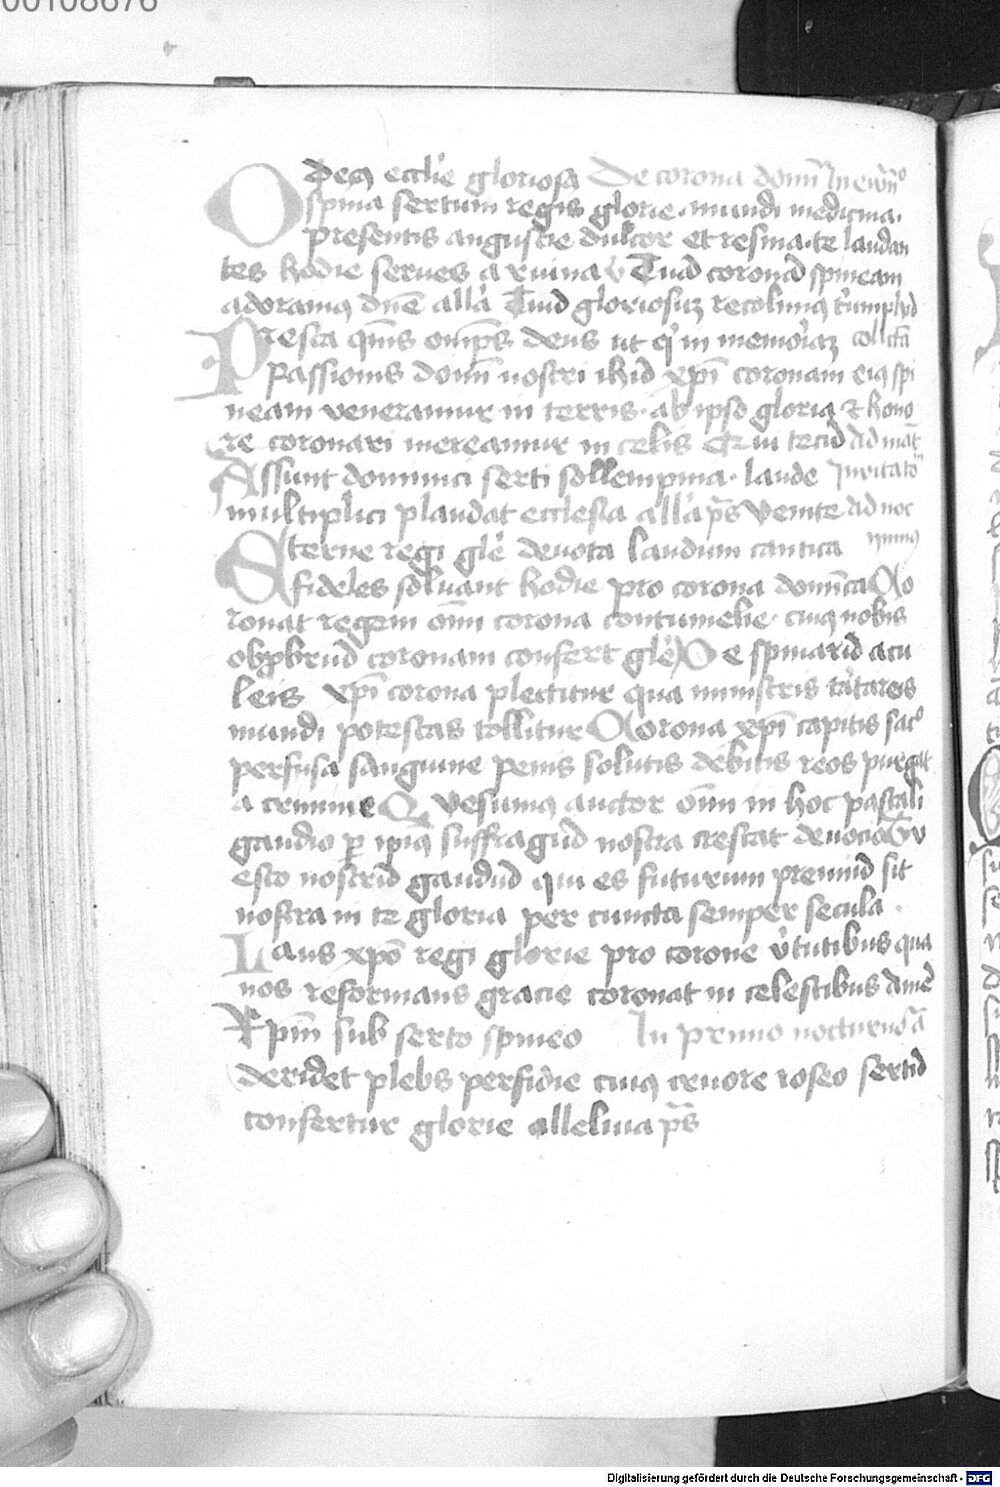 00108676
O decꝯ eccl'ie gloriosa De corona domi in ewn°
spina sertum regis glorie · mundi medicina ·
presentis angustie dulcor et resina · te laudan
tes hodie serues a ruina v Tuā coronā spineam
adoramꝯ dn̄e all'a Tuū gloriosuʒ recolimꝯ t'umphū
Presta qm̄s omp̄s deus ut q' in memoiaʒ collcta
passionis domī nostri ihū xp̄i coronam eiꝯ spi
neam veneramur in terris · ab ipso gloria ⁊ hono
re coronari mereamur in celis Et in tecū ad mat̄
Assunt dominici serti sollempnia · laude Inuitato
multiplici plaudat ecclesia all'a p̄s Venite ad noc
Eterne regi gl'e deuota laudum cantica ympnꝯ
fideles soluant hodie pro corona domīca Co
ronat regem om̄i corona contumelie · cuiꝯ nobis
obp̄briū coronam confert gl'e De spinarū acu
leis xp̄i corona plectitur qua ministris tartareis
mundi potestas tollitur Corona xp̄i capitis sac°
perfusa sanguine penis solutis debitis reos purgat
a crimine Quesumꝯ auctor om̄i in hoc pascali
gaudio p ipiꝯ suffragiū nostra crescat deuocio Tu
esto nostrū gaudiū qui es futurum premiū sit
nostra in te gloria per cuncta semper secula ·
Laus xp̄o regi glorie pro corone v'tutibus qua
nos reformans gracie coronat in celestibus Amē
Xp̄m sub serto spineo In primo nocturno a
deridet plebs perfidie cuiꝯ cruore roseo sertū
confertur glorie alleluia p̄s
Digitalisierung gefördert durch die Deutsche Forschungsgemeinschaft - DFG